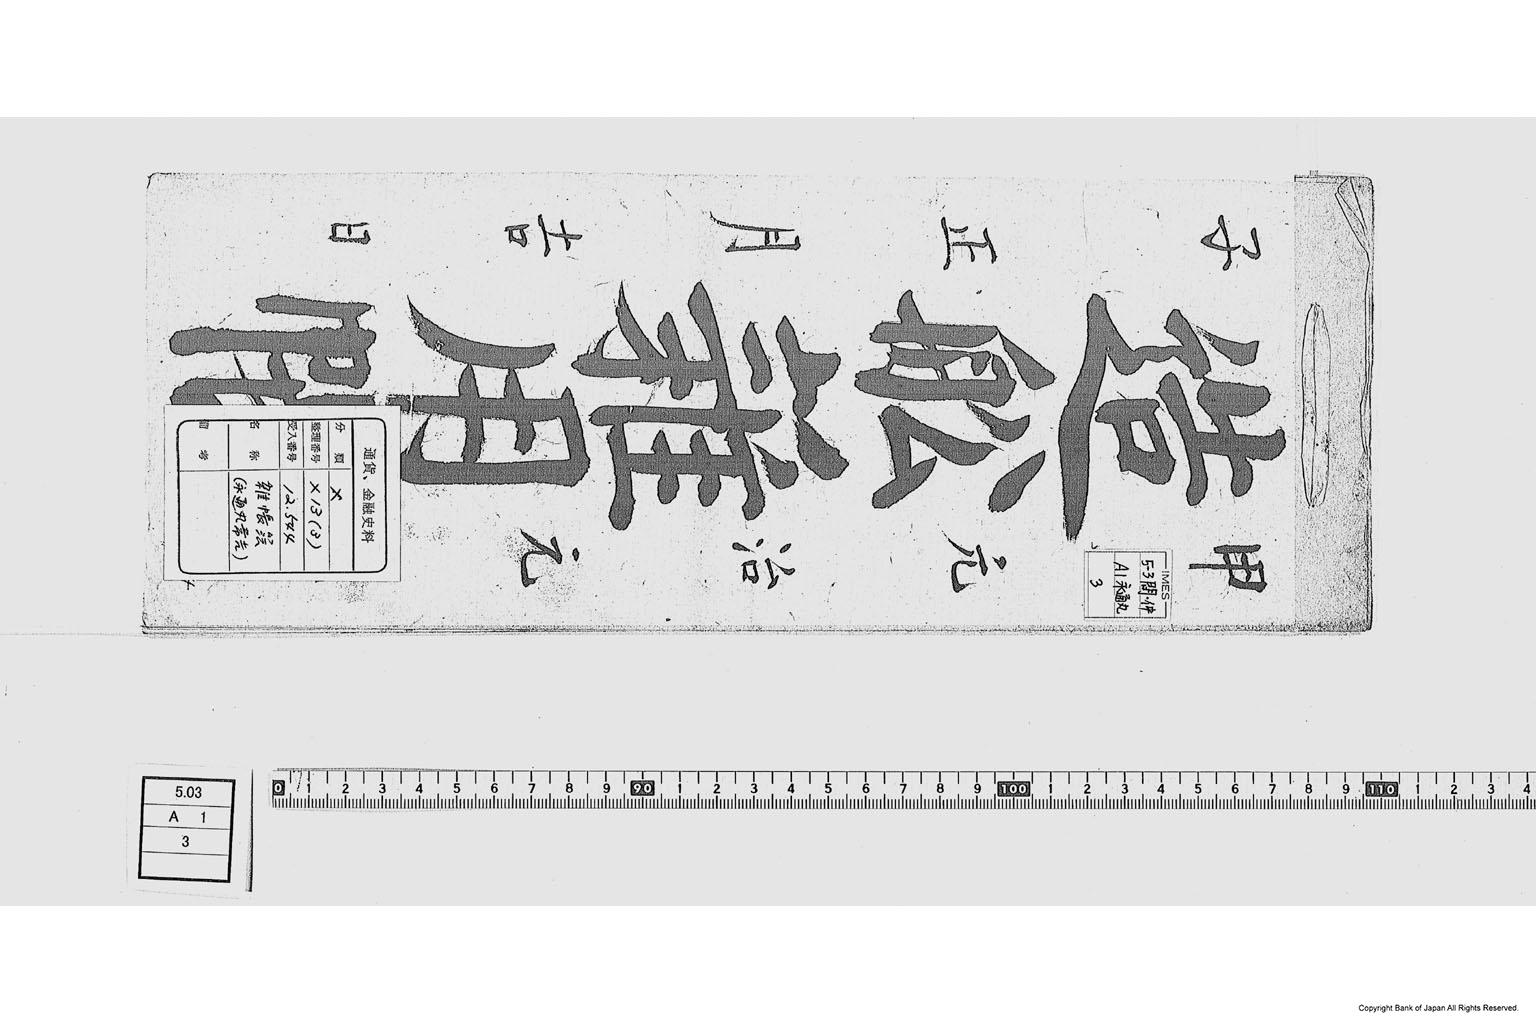 甲元治元
造舩雑用帳
子正月吉日
IMES
5-3
A1 永通丸
3
通貨、金融史料
分類 X
整理番号 X13(3)
受入番号 12.544
名称 雑帳
(永通丸
備考
5.03
A 1
3
0 1 2 3 4 5 6 7 8 9 90 1 2 3 4 5 6 7 8 9 100 1 2 3 4 5 6 7 8 9 110 1 2 3 4
Copyright Bank of Japan All Rights Reserved.